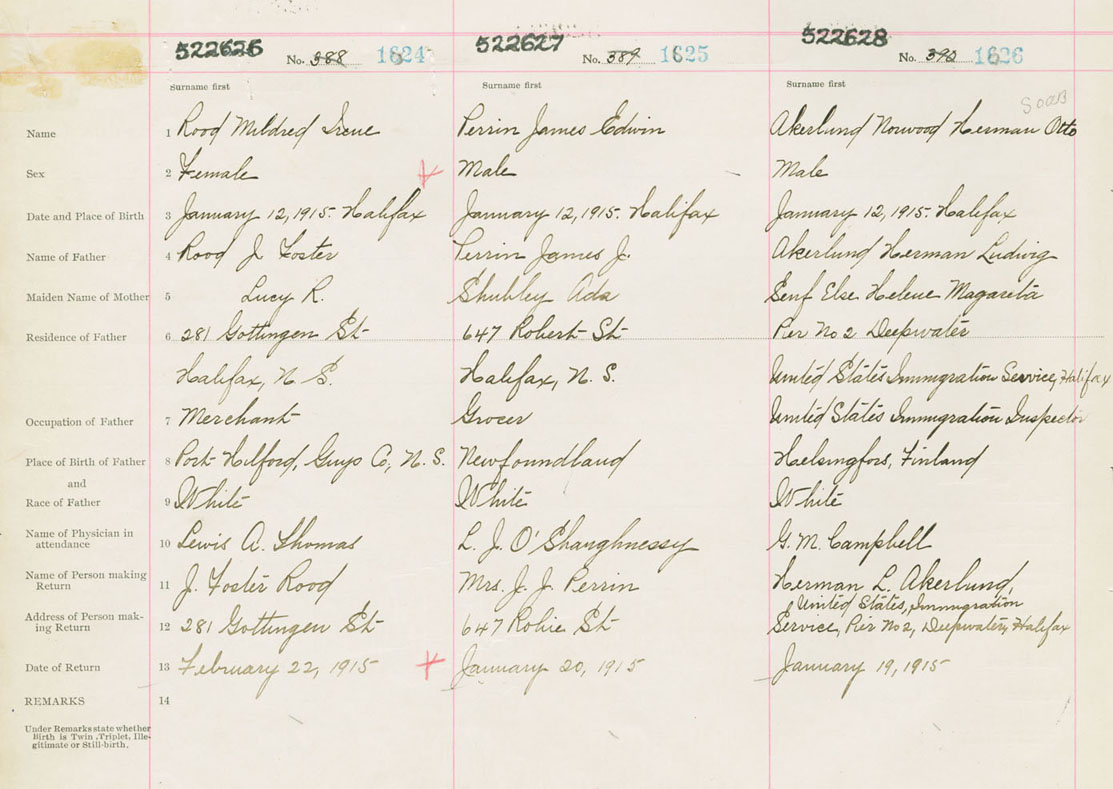 522626 522627 522628
No. 388 1624 No. 389 1625 No. 390 1626
Surname first Surname first Surname first
Name 1 Rood Mildred Irene Perrin James Edwin Akerlund Norwood Herman Otto
Sex 2 Female Male Male
Date and Place of Birth 3 January 12, 1915. Halifax January 12, 1915. Halifax January 12, 1915. Halifax
Name of Father 4 Rood J. Foster Perrin James J. Akerlund Herman Ludwig
Maiden Name of Mother 5 Lucy R. Shubley Ada Senf Else Helene Magareta
Residence of Father 6 281 Gottingen St 647 Robert St Pier No 2 Deepwater
Halifax, N. S. Halifax, N. S. United States Immigration Service, Halifax
Occupation of Father 7 Merchant Grocer United States Immigration Inspector
Place of Birth of Father 8 Port Hilford, Guys Co, N. S. Newfoundland Helsingfors, Finland
and
Race of Father 9 White White White
Name of Physician in
attendance 10 Lewis A. Thomas L. J. O'Shaughnessy G. M. Campbell
Name of Person making
Return 11 J. Foster Rood Mrs. J. J. Perrin Herman L. Akerlund,
United States, Immigration
Address of Person mak-
ing Return 12 281 Gottingen St 647 Robie St Service, Pier No 2, Deepwater, Halifax
Date of Return 13 February 22, 1915 January 20, 1915 January 19, 1915
REMARKS 14
Under Remarks state whether
Birth is Twin, Triplet, Ille-
gitimate or Still-birth.